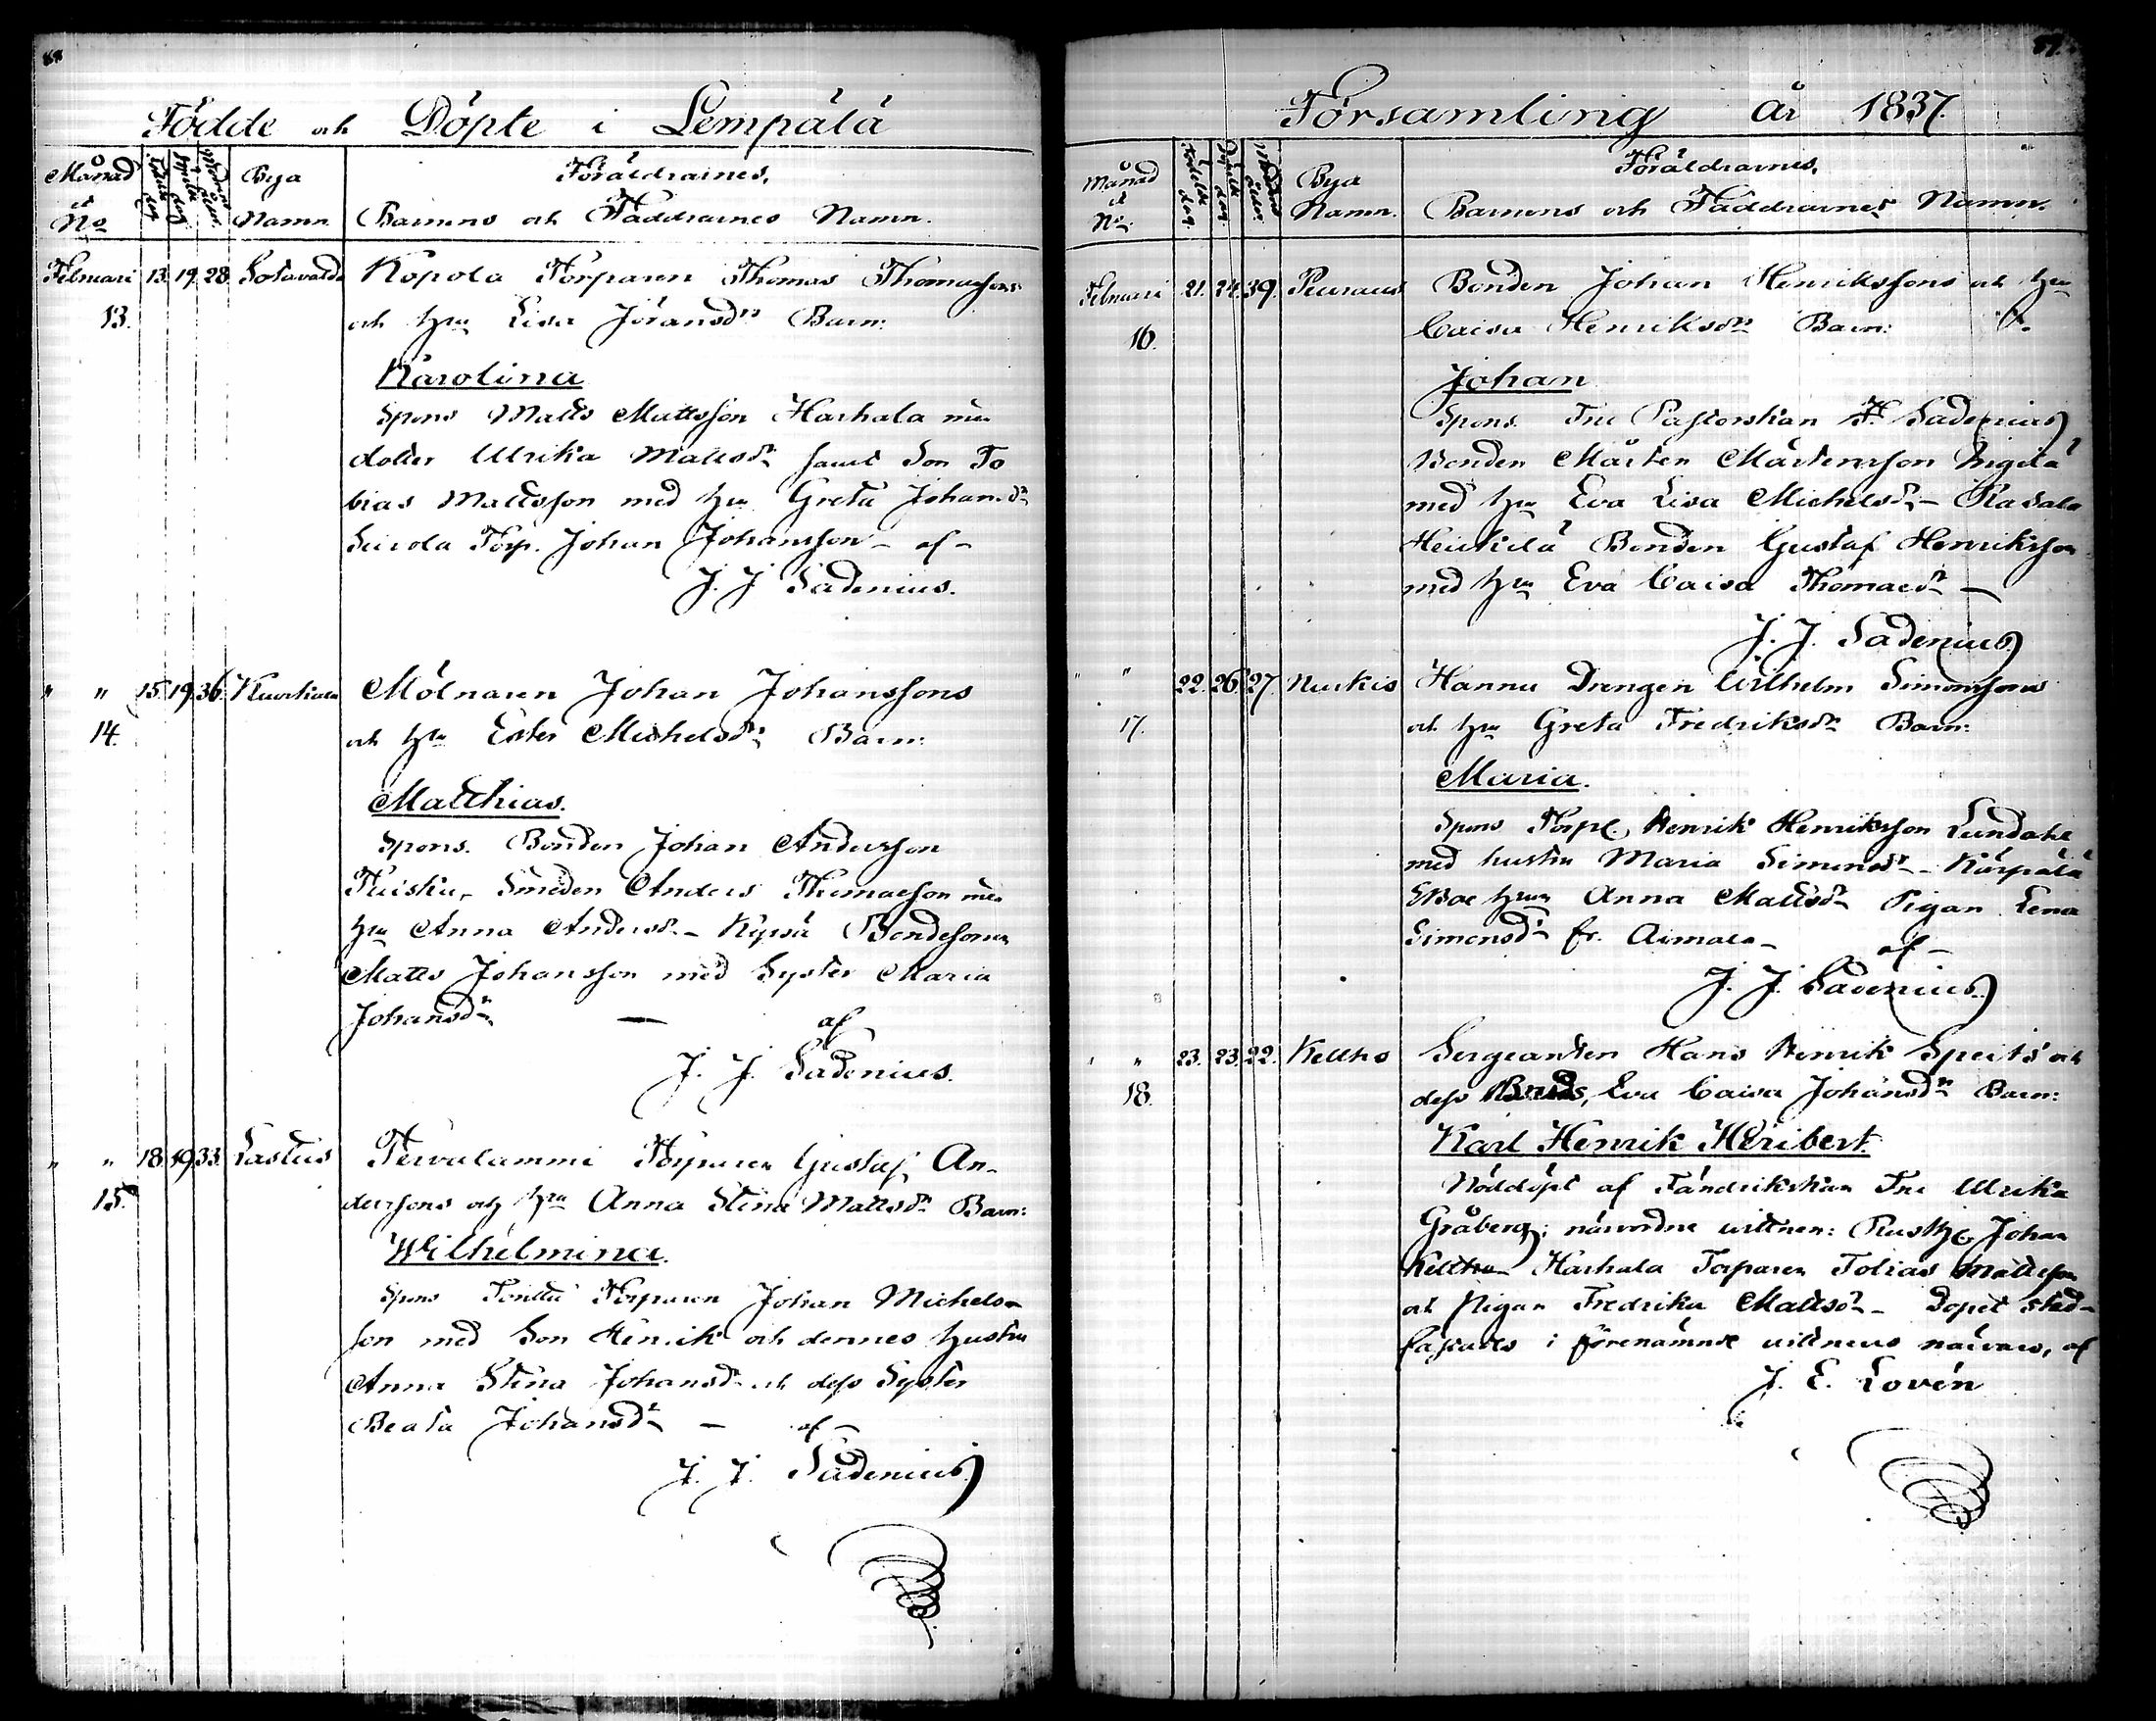 Födde och Döpte i Lempälä
Månad
et
No
Födelse dag
Döpelse dag
Modrens ålder
Bya
Namn.
Föräldrarnes,
Barnens och Faddrarnes Namn.
Februari 13. 19. 28. Sotavalda Kopola Torparen Thomas Thomassons
13. och hru Lisa Jöransdr Barn:
Karolina
Spons Matts Mattsson Harhala med
dotter Ulrika Mattsdr samt Son To
bias Mattsson med hru Greta Johansdr
Torp. Johan Johansson - af -
J. J. Sadenius.
" " 15. 19. 36. Kuorhala Mölnaren Johan Johanssons
14. och hru Ester Michelsdr Barn:
Matthias.
Spons. Bonden Johan Andersson
Tuisku, Smeden Anders Thomasson med
hru Anna Andersdr - Kypsä Bondesonen
Matts Johansson med Syster Maria
Johansdr — af
J. J. Sadenius.
" " 18. 19. 33. Lastus Tervalammi Torparen Gustaf An-
15. derssons och hru Anna Stina Mattsdr Barn:
Wilhelmina.
Spons Torparen Johan Michels-
son med Son Henrik och dennes hustru
Anna Stina Johansdr och dess Syster
Beata Johansdr — af —
J. J. Sadenius
Församling år 1837.
Månad
et
No.
Födelse dag.
Döpelse dag.
Modrens ålder.
Bya
Namn.
Föräldrarnes,
Barnens och Faddrarnes Namn.
Februari 21. 24. 39. Peuraus Bonden Johan Henrikssons och hru
16. Caisa Henriksdr Barn:
Johan
Spons. Fru Pastorskan Sadenius
Bonden Mårten Mårtensson
med hru Eva Lisa Michelsdr - Rasala
Heikilä Bonden Gustaf Henriksson
med hru Eva Caisa Thomasdr —
J. J. Sadenius
" " 22. 26. 27 Nurkis Hannu Drengen Wilhelm Simonssons
17. och hru Greta Fredriksdr Barn:
Maria.
Spons Torp. Henrik Henriksson Lundahl
med hustru Maria Simonsdr - Kärpälä
hru Anna Mattsdr Pigan Lena
Simonsdr fr. Aimala - af -
J. J. Sadenius
" " 23. 23. 22. Keltho Sergeanten Hans Henrik Speits och
18. dess Bruds, Eva Caisa Johansdr Barn:
Karl Henrik Heribert.
Nöddöpt af Fändrikskan Fru Ulrika
Gråberg; närvordne vittnen: Rusth. Johan
Keltho Harhala Torparen Tobias Mattsson
och Pigan Fredrika Mattsdr - Dopet stad-
fästades i förenämnde vittnens närvaro, af
J. E. Lovén